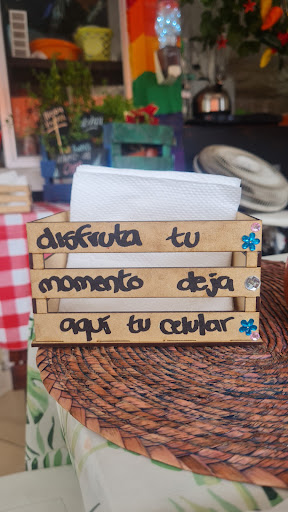 disfruta tu
momento deja
aquí tu celular